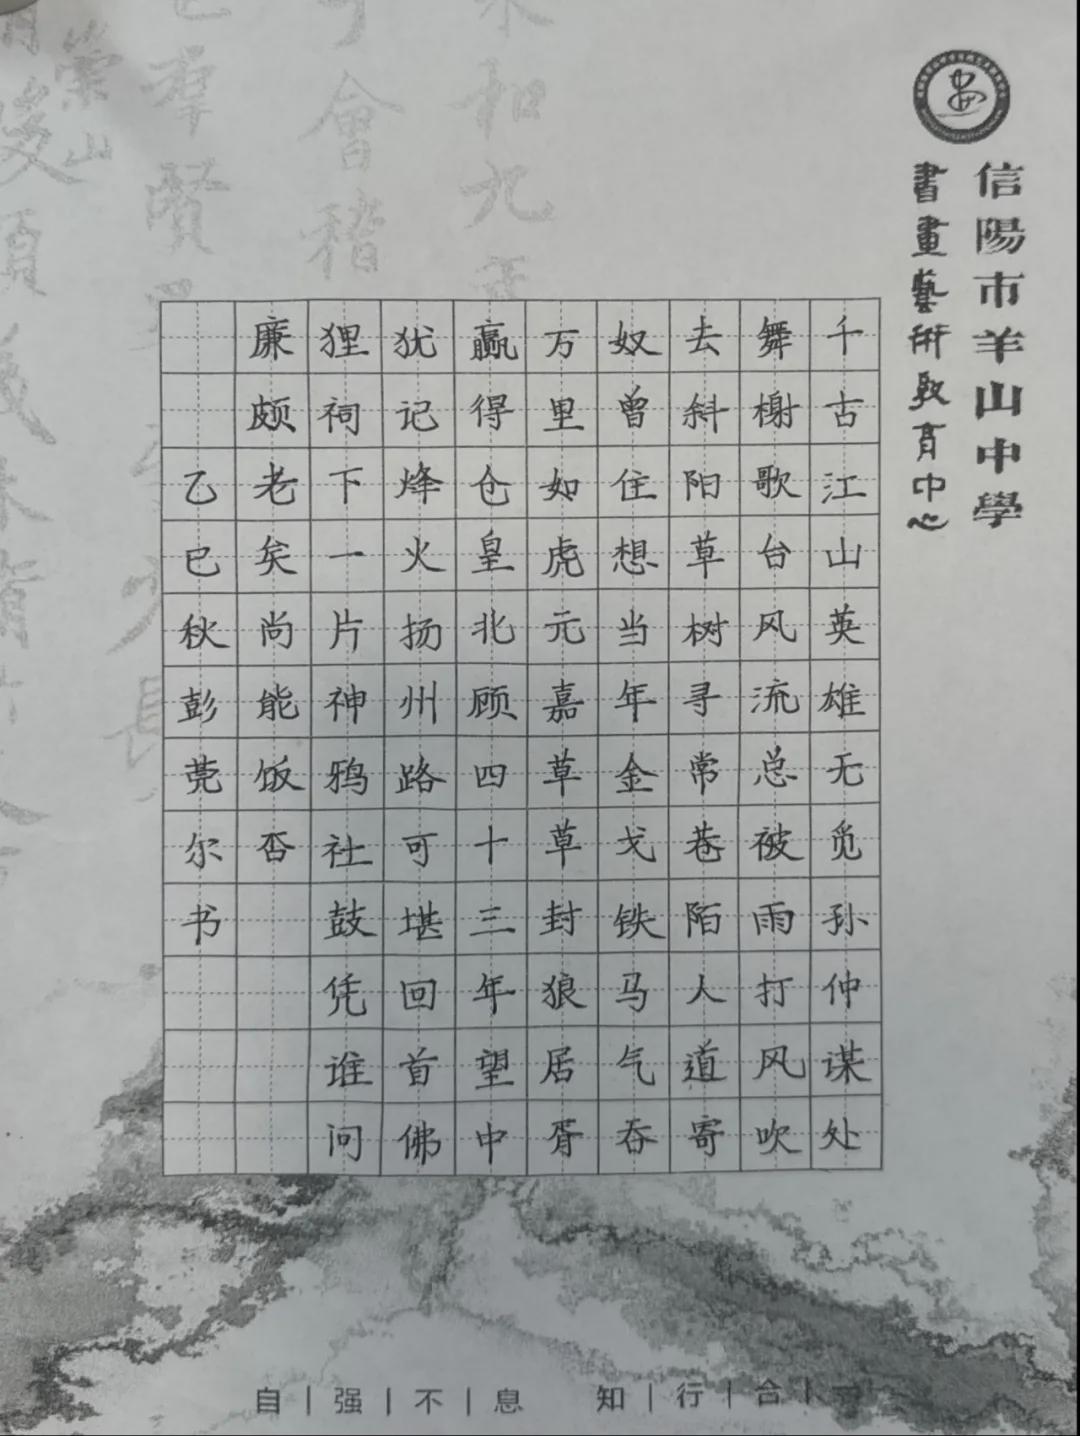 信陽市羊山中學
書畫藝術教育中心
千古江山英雄无觅孙仲谋处
舞榭歌台风流总被雨打风吹
去斜阳草树寻常巷陌人道寄
奴曾住想当年金戈铁马气吞
万里如虎元嘉草草封狼居胥
赢得仓皇北顾四十三年望中
犹记烽火扬州路可堪回首佛
狸祠下一片神鸦社鼓凭谁问
廉颇老矣尚能饭否
乙巳秋彭莞尔书
自|强|不|息 知|行|合|一